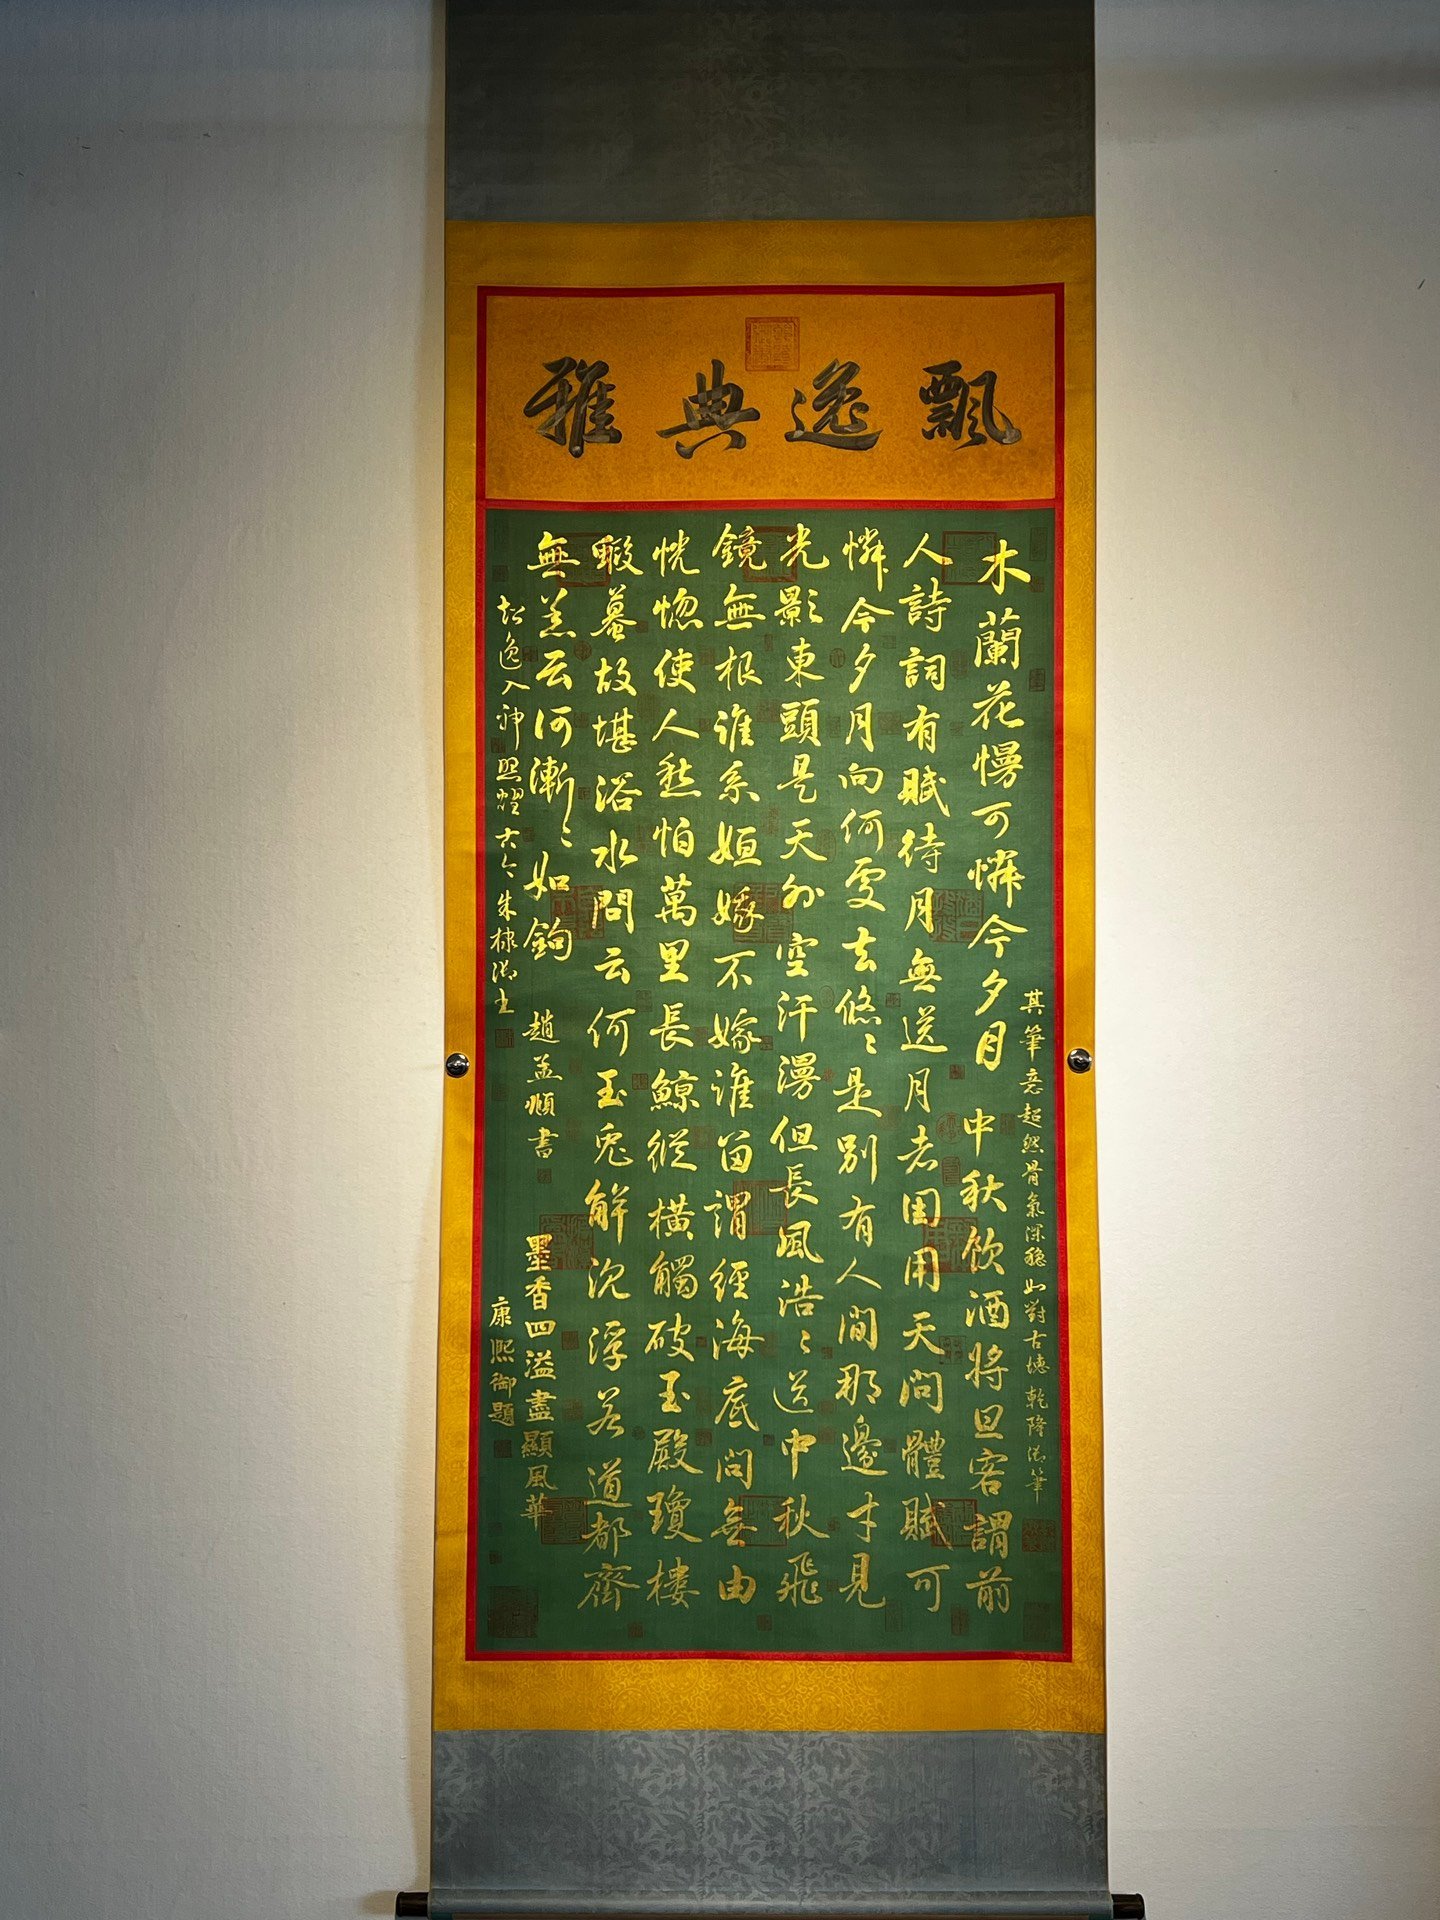 飄逸典雅
其筆意超然骨氣深穩如對古德 乾隆御筆
木蘭花慢可憐今夕月 中秋飲酒將旦客謂前
人詩詞有賦待月無送月者因用天問體賦可
憐今夕月向何處去悠〻是別有人間那邊才見
光影東頭是天外空汗漫但長風浩〻送中秋飛
鏡無根誰系姮娥不嫁誰留謂經海底問無由
恍惚使人愁怕萬里長鯨縱橫觸破玉殿瓊樓
蝦蟇故堪浴水問云何玉兔解沉浮若道都齊
無恙云何漸〻如鉤 趙孟頫書 墨香四溢盡顯風華
超逸入神照耀古今朱棣御
康熙御題